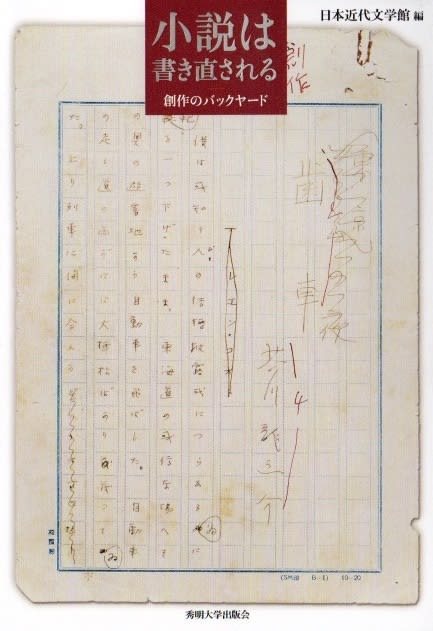 日本近代文学館 編
小説は
書き直される
創作のバックヤード
創作
歯車
芥川龍之介
レエン・コオト
僕は或知り人の結婚披露式につらなる為に
鞄を一つ下げたまま、東海道の或停車場へそ
の奥の避暑地から自動車を飛ばした。自動車
の走る道の両がはは大抵松ばかり茂つてゐ
た。上り列車に間に合ふ
(SM印 B-1) 10-20
秀明大学出版会